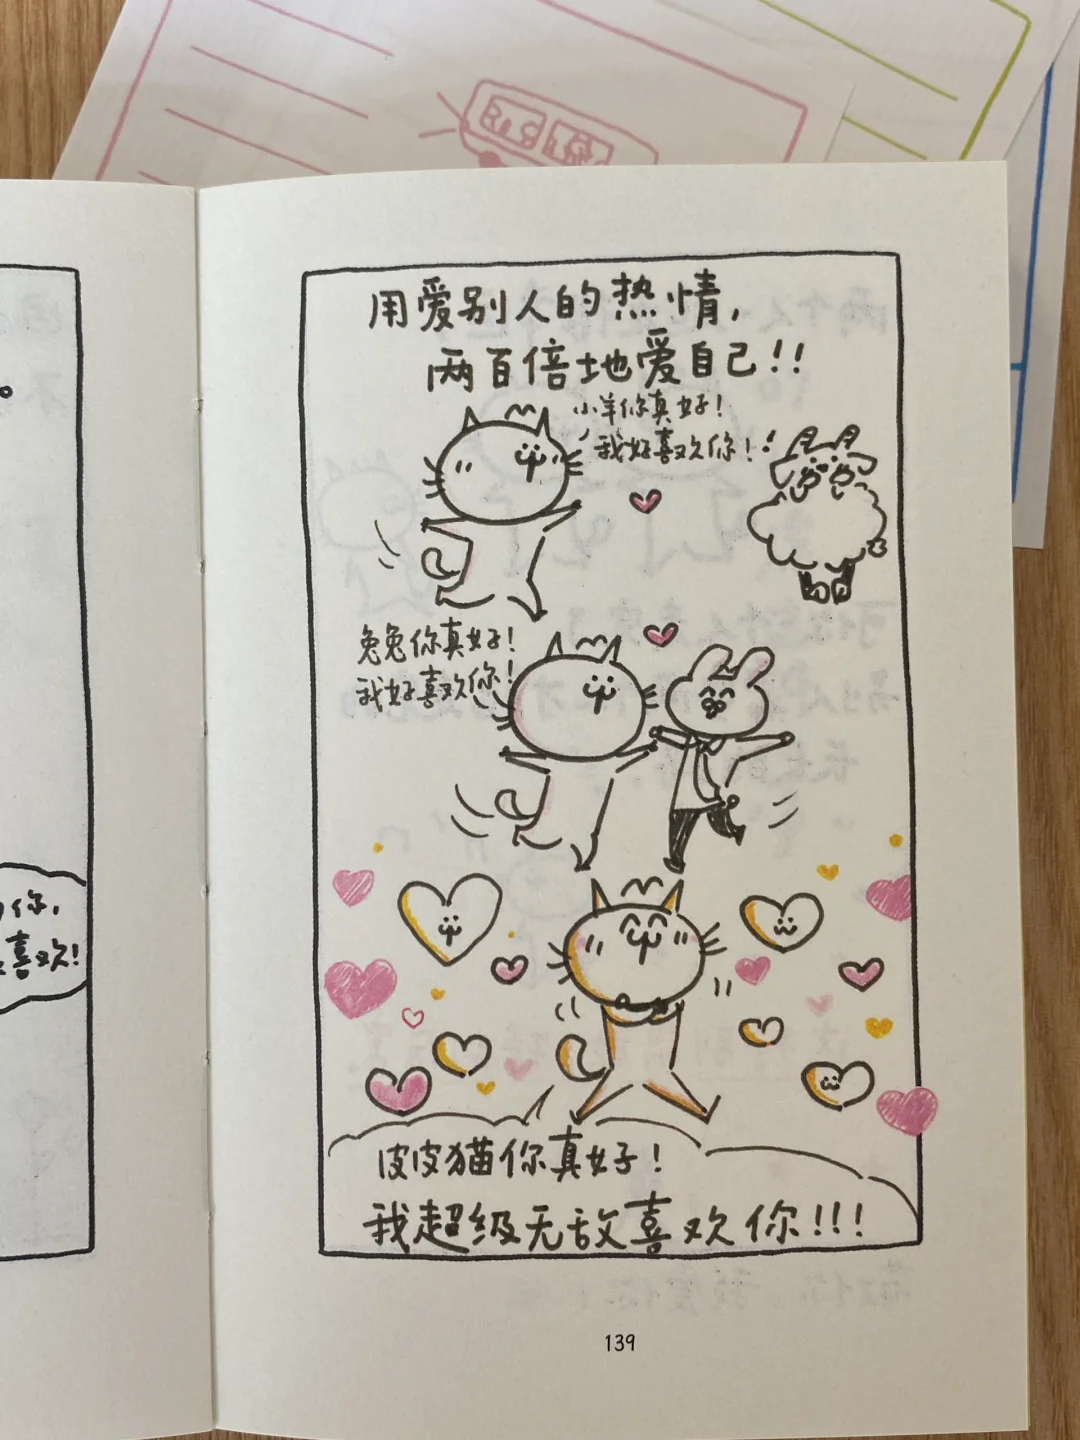 用爱别人的热情,
两百倍地爱自己!!
小羊你真好!
我好喜欢你!
兔兔你真好!
我好喜欢你!
你,
喜欢!
皮皮猫你真好!
我超级无敌喜欢你!!!
139